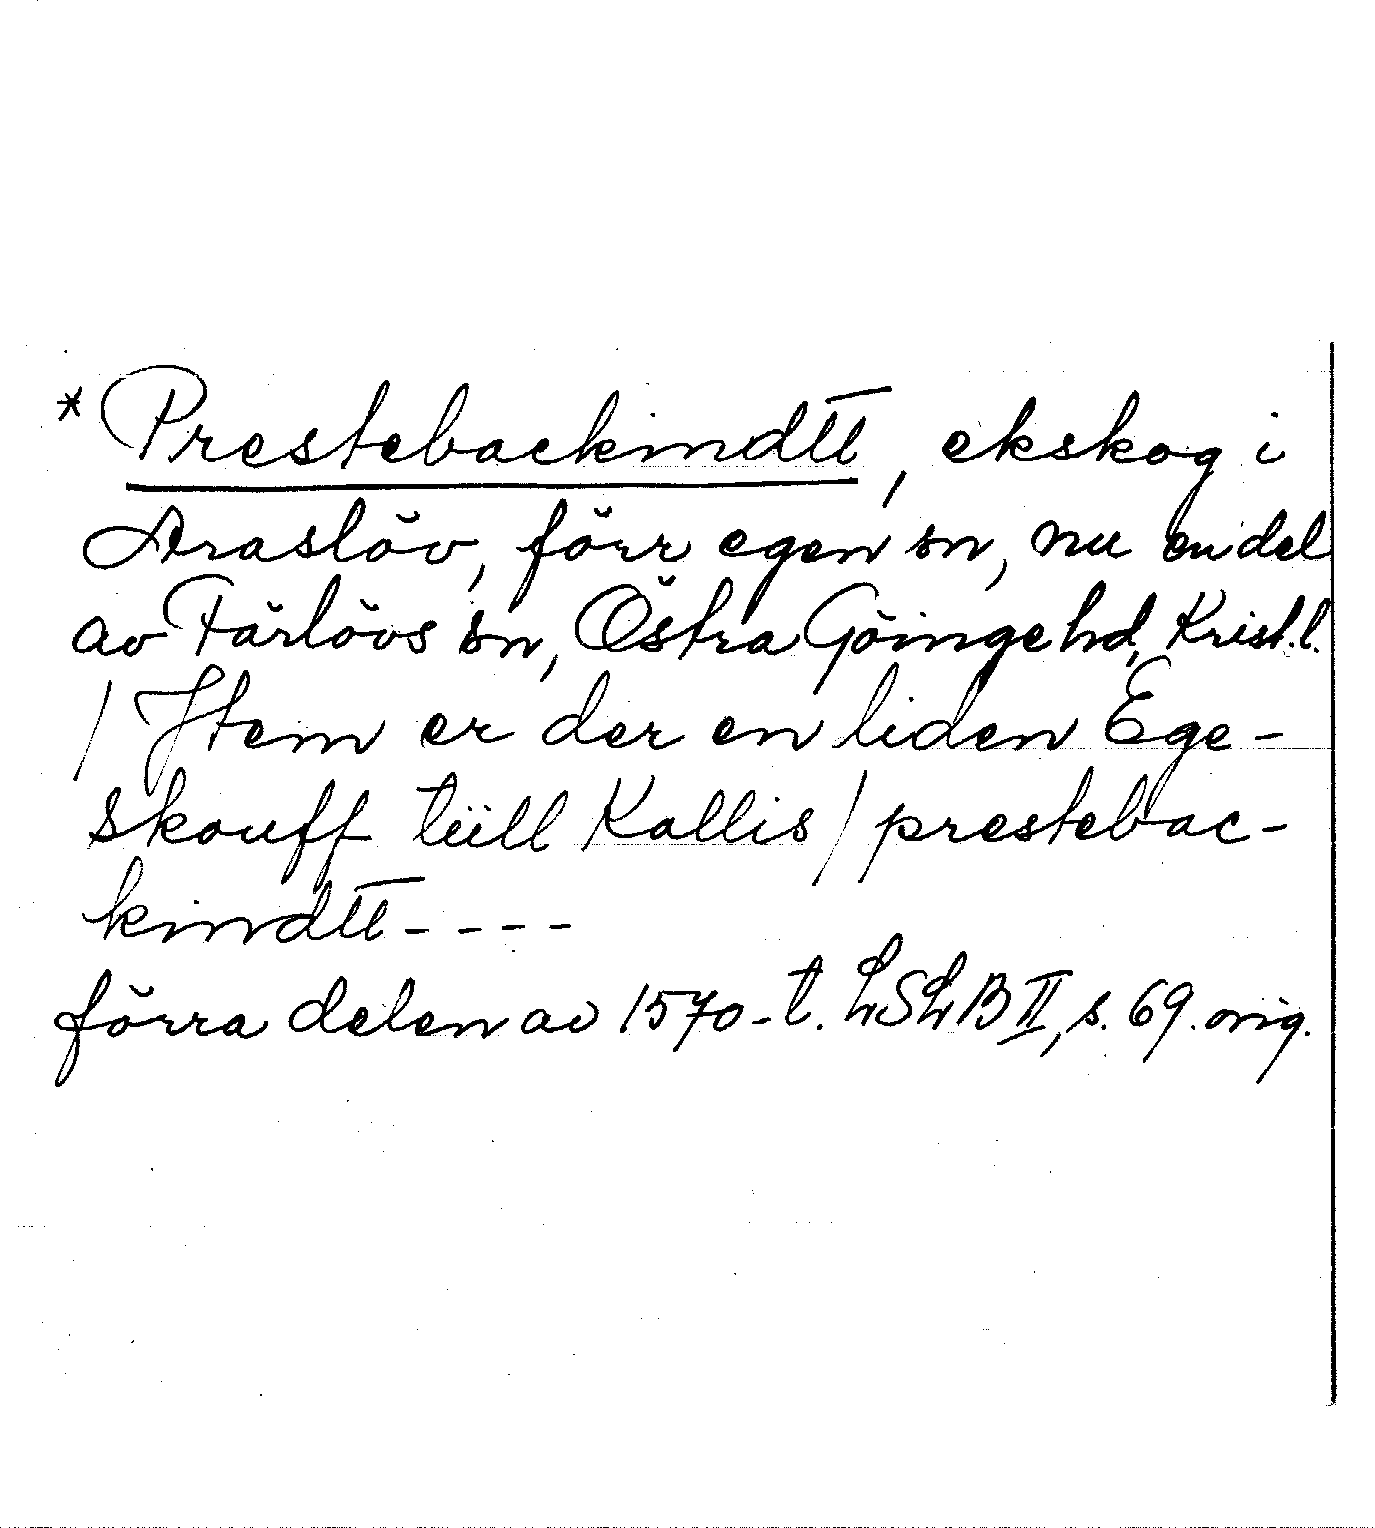 * Prestebackindtt, ekskog i
Araslöv, förr egen sn, nu en del
av Färlövs sn, Östra Göinge hd, Krist.l.
/ Item er der en liden Ege-
skouff tüll Kallis / prestebac-
kindtt ----
förra delen av 1570-t. LSLB II, s. 69. orig.